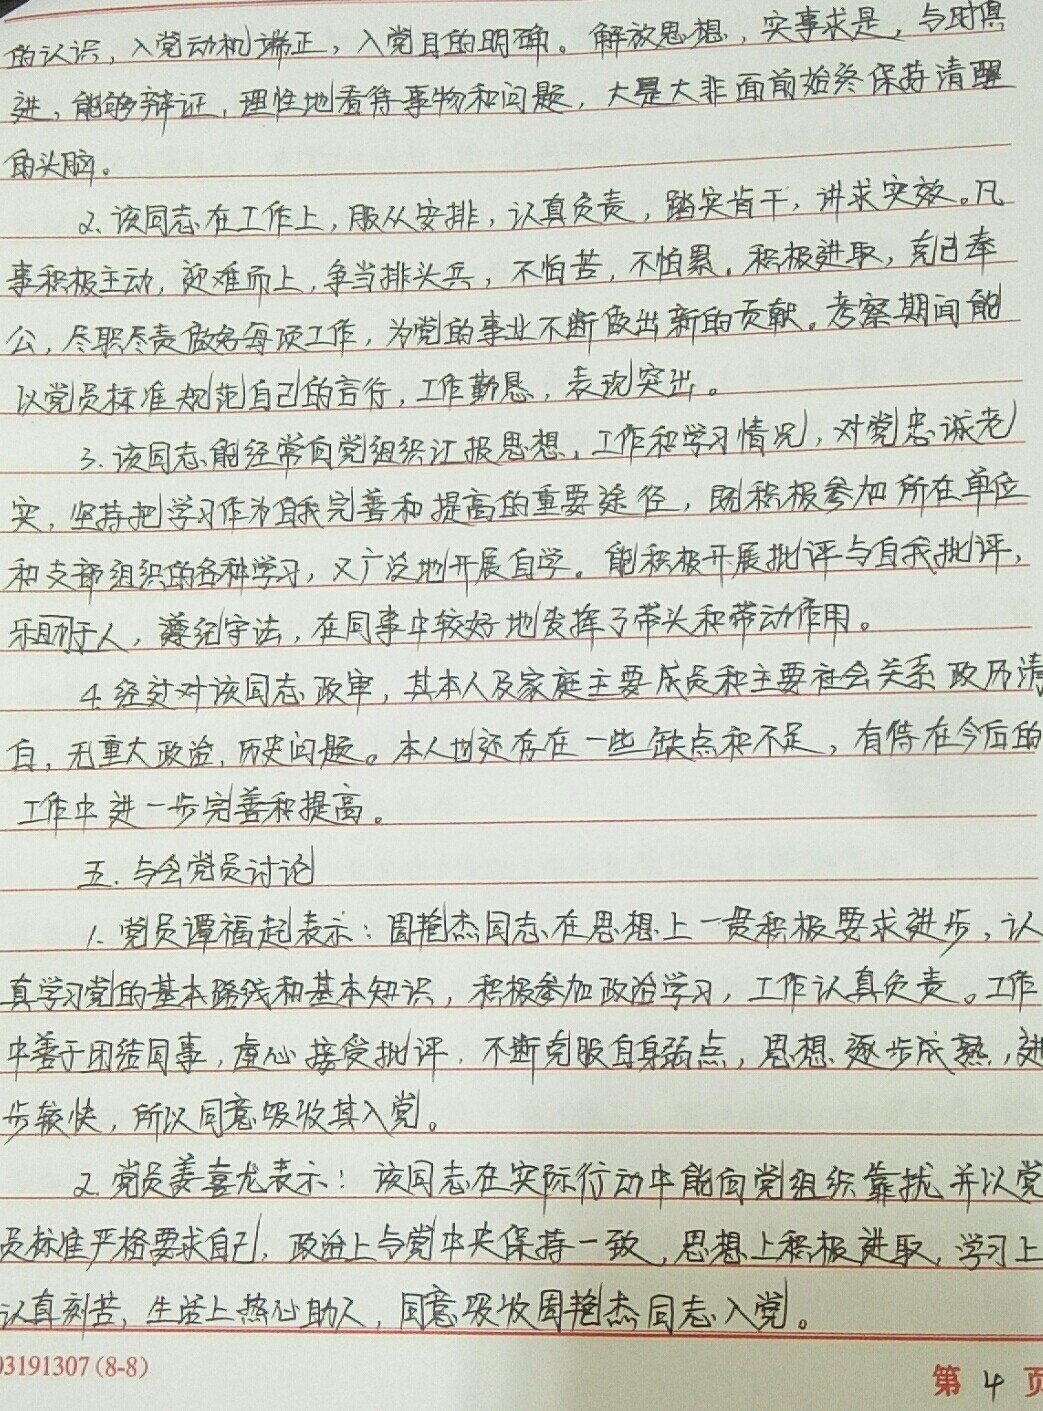 的认识，入党动机端正，入党目的明确。解放思想，实事求是，与时俱
进，能够辩证，理性地看待事物和问题，大是大非面前始终保持清醒
的头脑。
2. 该同志在工作上，服从安排，认真负责，踏实肯干，讲求实效。凡
事积极主动，迎难而上，争当排头兵，不怕苦，不怕累，积极进取，克己奉
公，尽职尽责做好每项工作，为党的事业不断做出新的贡献。考察期间能
以党员标准规范自己的言行，工作勤恳，表现突出。
3. 该同志能经常向党组织汇报思想，工作和学习情况，对党忠诚老
实，坚持把学习作为自我完善和提高的重要途径，既积极参加所在单位
和支部组织的各种学习，又广泛地开展自学。能积极开展批评与自我批评，
乐于助人，遵纪守法，在同事中较好地发挥了带头和带动作用。
4. 经过对该同志政审，其本人及家庭主要成员和主要社会关系政历清
白，无重大政治，历史问题。本人也还存在一些缺点和不足，有待在今后的
工作中进一步完善和提高。
五. 与会党员讨论
1. 党员谭福起表示：周艳杰同志在思想上一贯积极要求进步，认
真学习党的基本路线和基本知识，积极参加政治学习，工作认真负责。工作
中善于团结同事，虚心接受批评，不断克服自身弱点，思想逐步成熟，进
步较快，所以同意吸收其入党。
2. 党员姜喜龙表示：该同志在实际行动中能向党组织靠拢并以党
员标准严格要求自己，政治上与党中央保持一致，思想上积极进取，学习上
认真刻苦，生活上热心助人，同意吸收周艳杰同志入党。
03191307(8-8)
第 4 页